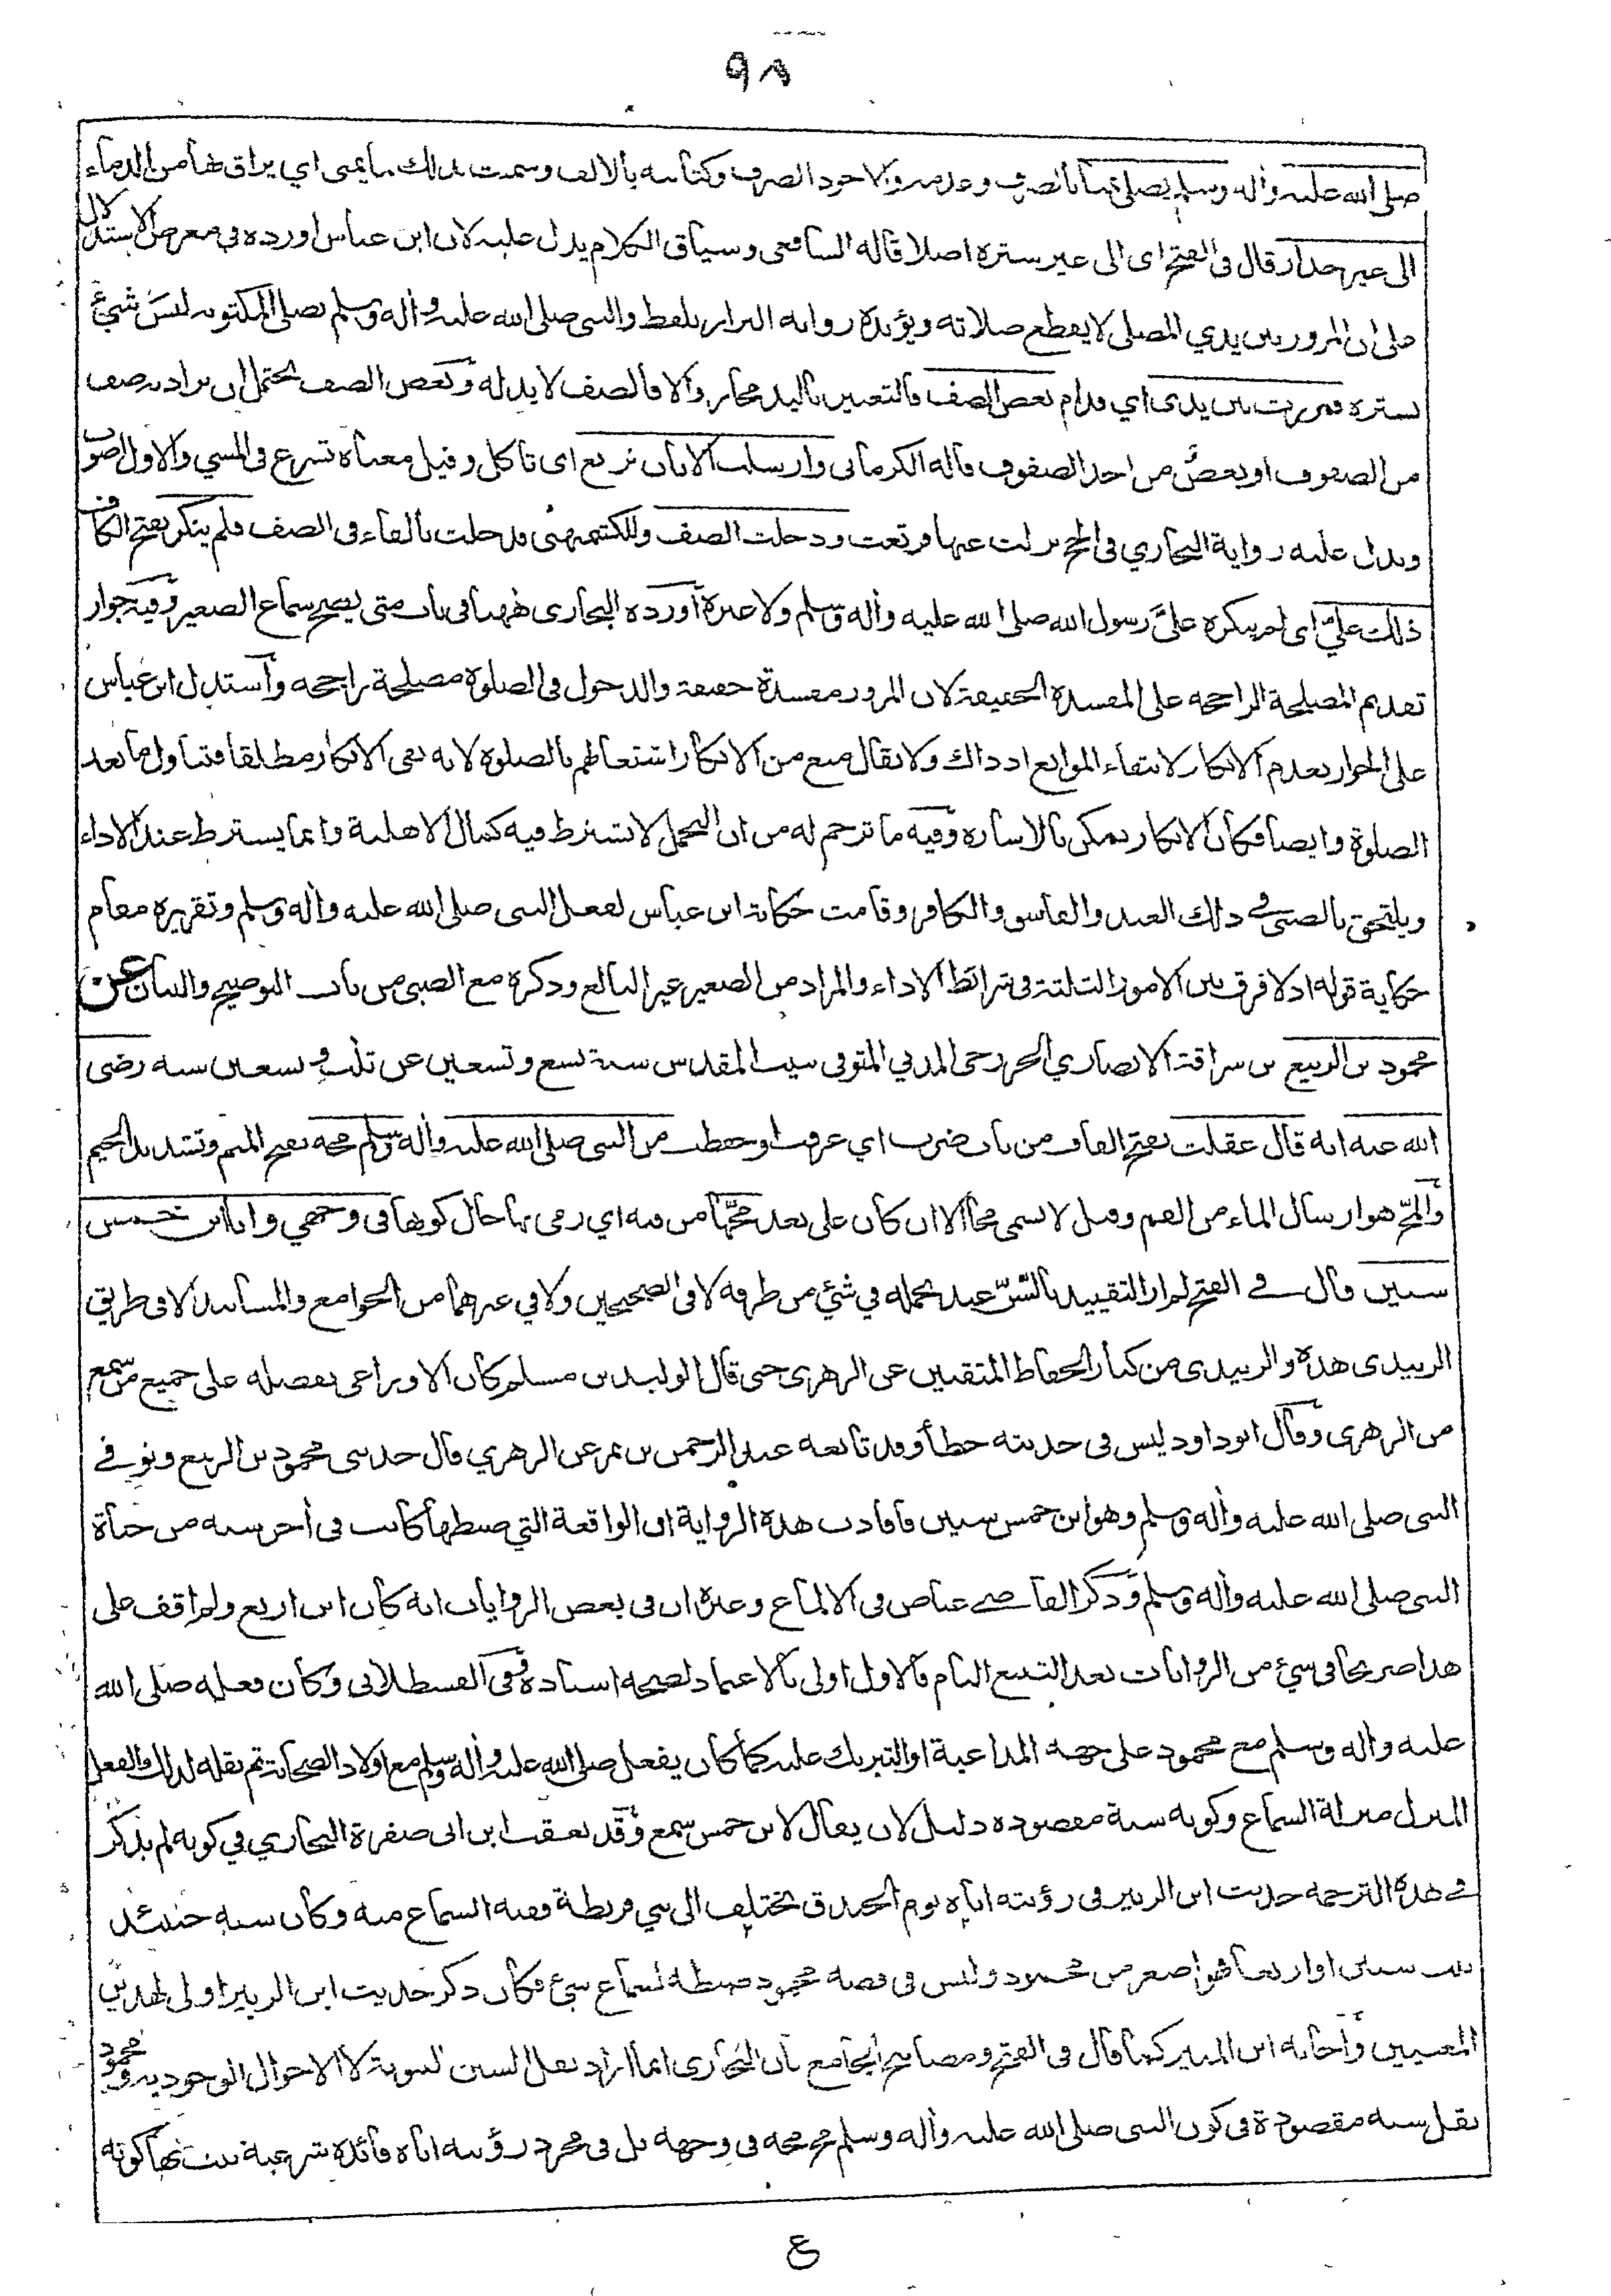 ٩٨
صلى الله عليه وآله وسلم يصلي بمنى بالصرف وعدمه والاجود الصرف وكتابته بالالف وسميت بذلك لما يمنى اي يراق بها من الدماء
الى غير جدار قال في الفتح اى الى غير سترة اصلا قاله الشافعي وسياق الكلام يدل عليه لان ابن عباس اورده في معرض الاستدلال
على ان المرور بين يدي المصلي لا يقطع صلاته ويؤيده رواية البزار بلفظ والنبي صلى الله عليه وآله وسلم يصلي المكتوبة ليس شيئ
يستره فمررت بين يدى اي قدام بعض الصف فالتعبير باليد مجاز والا فالصف لا يد له وبعض الصف يحتمل ان يراد به صف
من الصفوف او بعضٌ من احد الصفوف قاله الكرماني وارسلت الاتان ترتع اى تاكل وقيل معناه تسرع في المشي والاول اصوب
ويدل عليه رواية البخاري في الحج نزلت عنها فرتعت ودخلت الصف وللكشميهني فدخلت بالفاء في الصف فلم ينكر بفتح الكاف
ذلك عليَّ اى لم ينكره عليَّ رسول الله صلى الله عليه وآله وسلم ولا غيره أورده البخارى ههنا في باب متى يصح سماع الصغير وفيه جواز
تقديم المصلحة الراجحة على المفسدة الخفيفة لان المرور مفسدة خفيفة والدخول في الصلوة مصلحة راجحة واستدل ابن عباس
على الجواز بعدم الانكار لانتفاء الموانع اذ ذاك ولا يقال منع من الانكار اشتغالهم بالصلوة لانه نفى الانكار مطلقا فتناول ما بعد
الصلوة وايضا فكان الانكار يمكن بالاشارة وفيه ما ترجم له من ان التحمل لا تشترط فيه كمال الاهلية وانما يشترط عند الاداء
ويلتحق بالصبي في ذلك العبد والفاسق والكافر وقامت حكاية ابن عباس لفعل النبي صلى الله عليه وآله وسلم وتقريره مقام
حكاية قوله اذ لا فرق بين الامور الثلثة في شرائط الاداء والمراد من الصغير غير البالغ وذكره مع الصبي من باب التوضيح والبيان عن
محمود بن الربيع بن سراقة الانصاري الخزرجي المدني المتوفى ببيت المقدس سنة تسع وتسعين عن ثلث وتسعين سنه رضى
الله عنه انه قال عقلت بفتح القاف من باب ضرب اي عرفت او حفظت من النبي صلى الله عليه وآله وسلم مجه بفتح الميم وتشديد الجيم
والمجّ هو ارسال الماء من الفم وقيل لا يسمى مجا الا ان كان على بعد مجّها من فيه اي رمى بها حال كونها في وجهي وانا ابن خمس
سنين قال في الفتح لم ار التقييد بالسّنّ عند تحمله في شئ من طرقه لا في الصحيحين ولا في غيرهما من الجوامع والمسانيد الا في طريق
الزبيدى هذه والزبيدى من كبار الحفاظ المتقنين عن الزهرى حتى قال الوليد بن مسلم كان الاوزاعى يفضله على جميع من سمع
من الزهرى وقال ابوداود ليس في حديثه خطأ وقد تابعه عبد الرحمن بن نمر عن الزهري قال حدثنى محمود بن الربيع وتوفي
النبى صلى الله عليه وآله وسلم وهو ابن خمس سنين فافادت هذه الرواية ان الواقعة التي ضبطها كانت في أخر سنه من حياة
النبى صلى الله عليه وآله وسلم وذكر القاضي عياض في الالماع وغيره ان في بعض الروايات انه كان ابن اربع ولم اقف على
هذا صريحا في شئ من الروايات بعد التتبع التام فالاول اولى بالاعتماد لصحة اسناده وفي القسطلانى وكان فعله صلى الله
عليه وآله وسلم مع محمود على جهة المداعبة او التبريك عليه كما كان يفعل صلى الله عليه وآله وسلم مع اولاد الصحابة ثم نقله لذلك الفعل
المنزل منزلة السماع وكونه سنة مقصوده دليل لان يقال لابن خمس سمع وقد تعقب ابن ابى صفرة البخاري في كونه لم يذكر
في هذه الترجمه حديث ابن الزبير في رؤيته اباه يوم الخندق يختلف الى بني قريظة ففيه السماع منه وكان سنه حينئذ
ثلث سنين او اربعا فهو اصغر من محمود وليس في قصة محمود ضبطه لسماع شئ فكان ذكر حديث ابن الزبير اولى لهذين
المعنيين وأجابه ابن المنير كما قال في الفتح ومصابيح الجامع بان البخارى انما اراد نقل السنن النبوية لا الاحوال الوجودية ومحمود
نقل سنه مقصودة في كون النبى صلى الله عليه وآله وسلم مج مجه في وجهه بل في مجرد رؤيته اياه فائدة شرعية يثبت بها كونه
ع